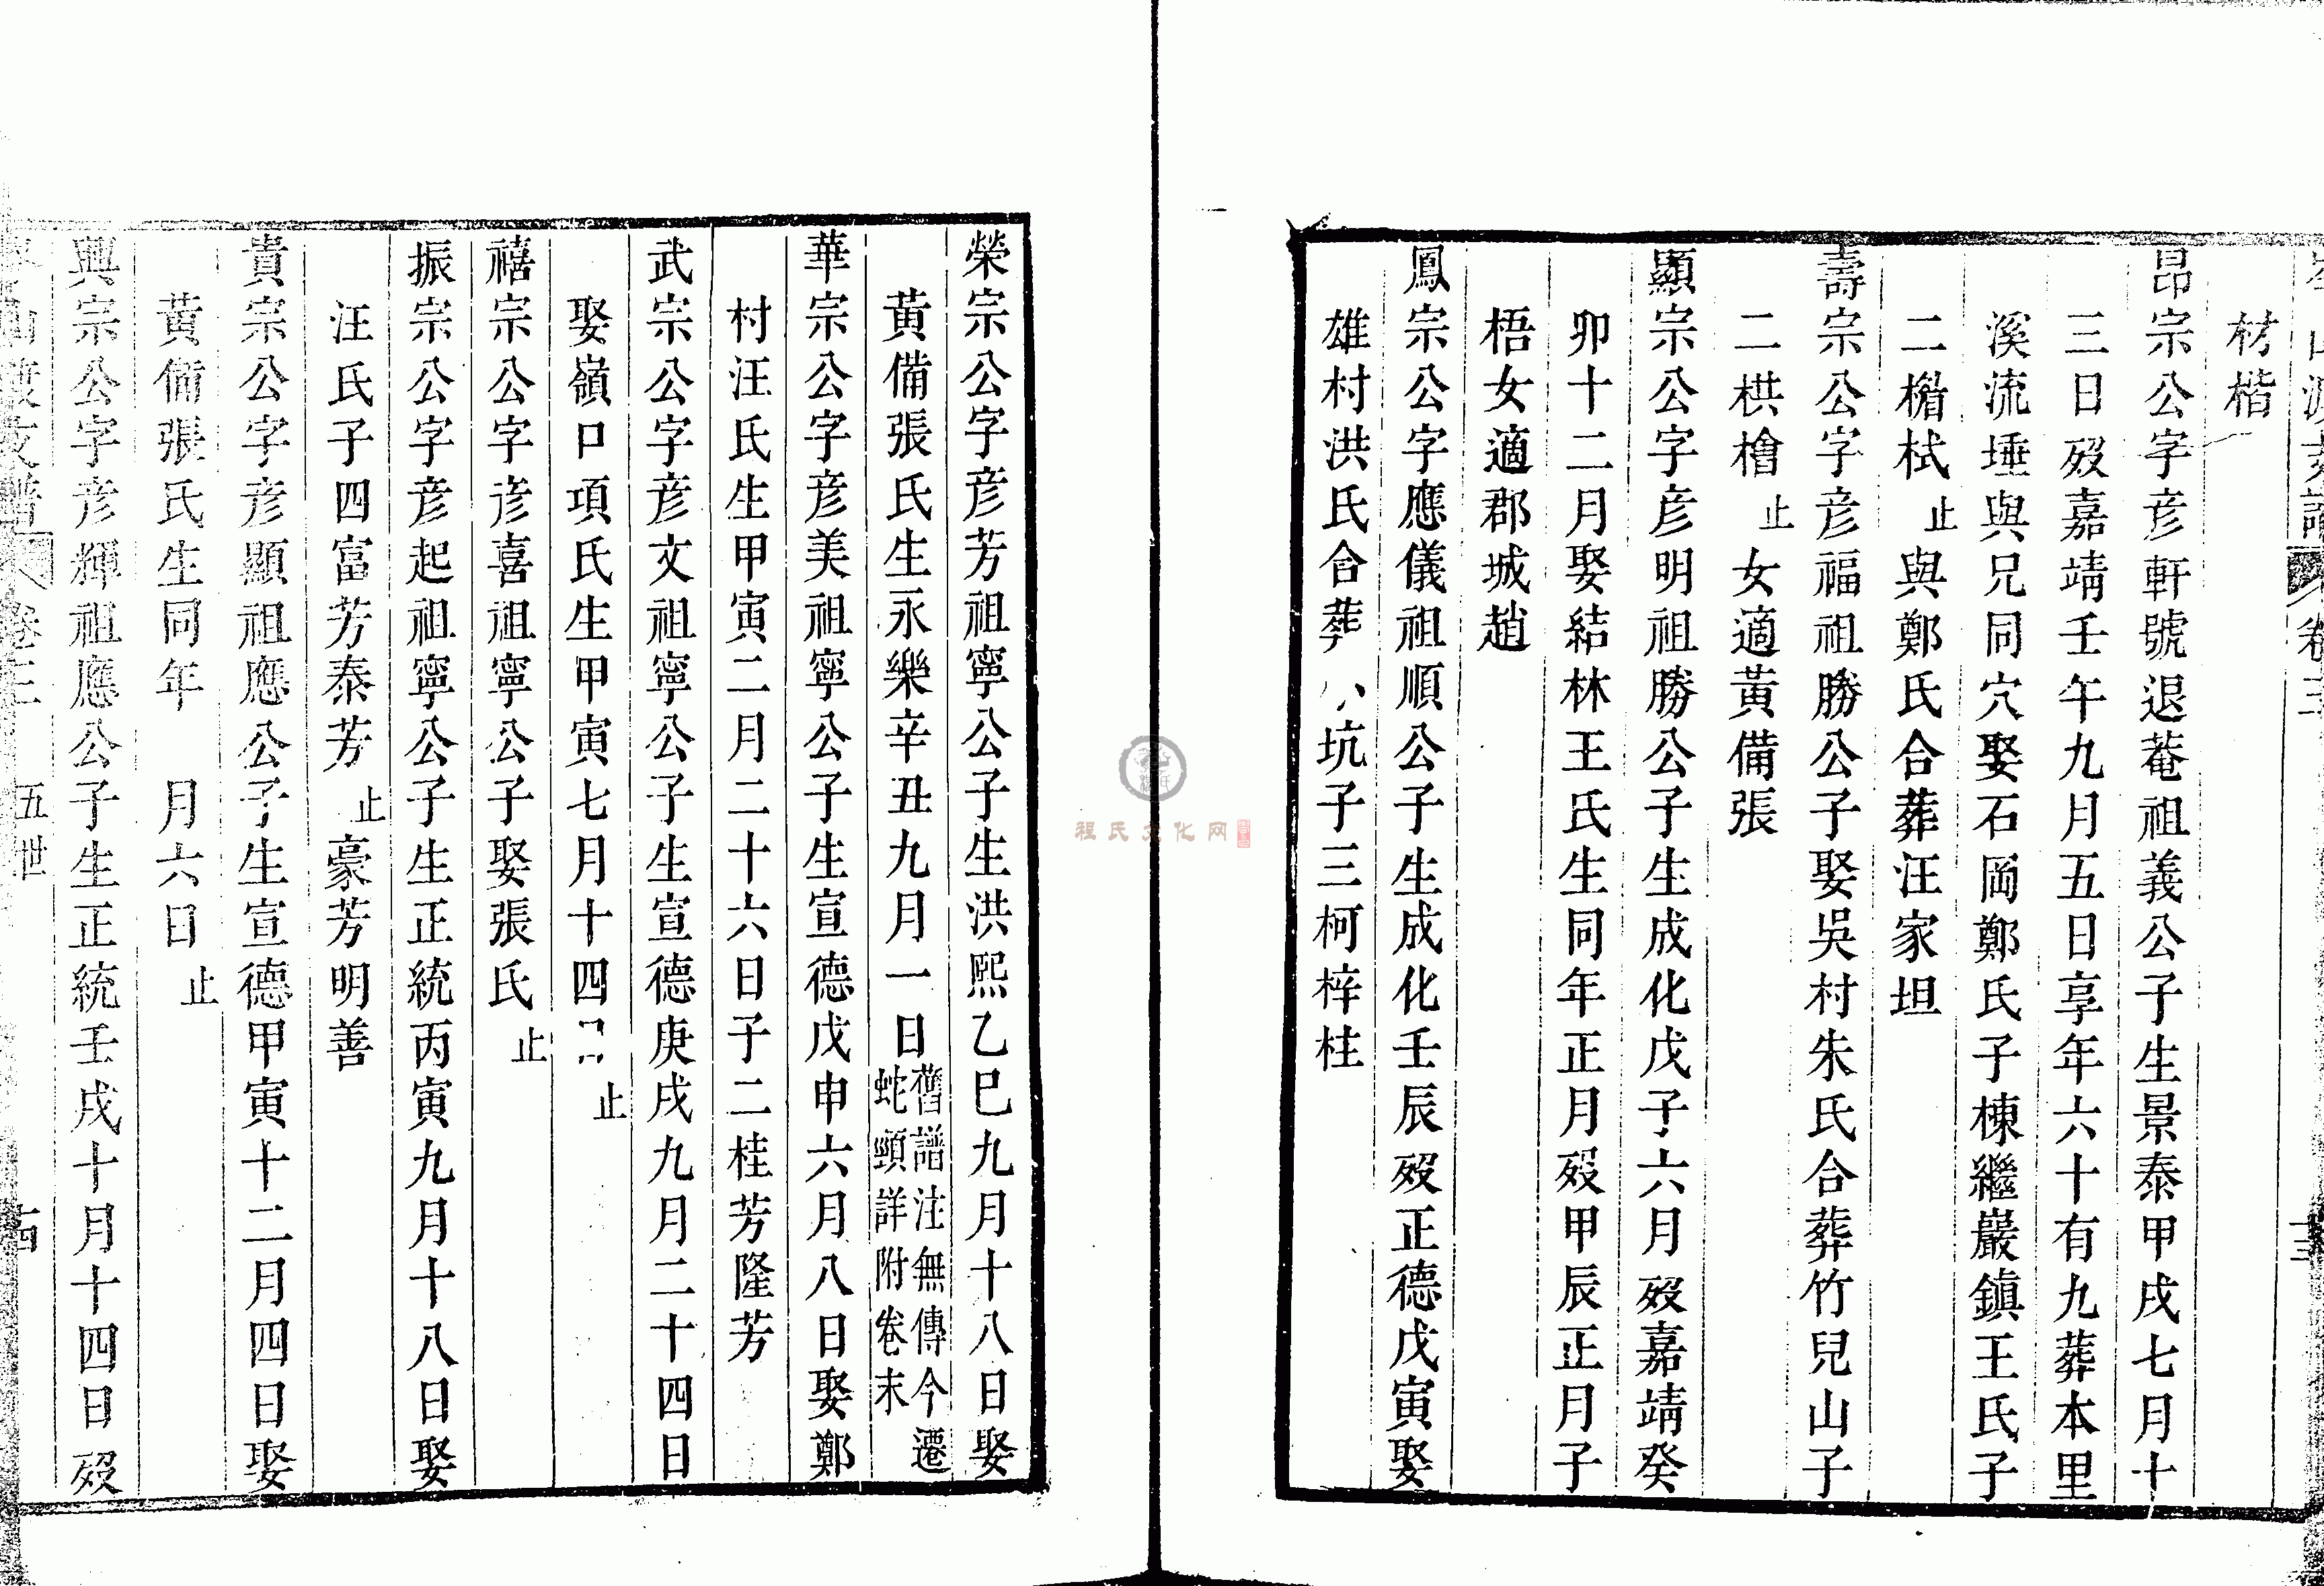 材楷
昂宗公字彦軒號退菴祖義公子生景泰甲戌七月十
三日歿嘉靖壬午九月五日享年六十有九葬本里
溪流埵與兄同穴娶石岡鄭氏子棟繼巖鎮王氏子
二楷栻止與鄭氏合葬汪家坦
壽宗公字彦福祖勝公子娶吳村朱氏合葬竹兒山子
二栱檜止女適黃備張
顯宗公字彦明祖勝公子生成化戊子六月歿嘉靖癸
卯十二月娶結林王氏生同年正月歿甲辰正月子
梧女適郡城趙
鳳宗公字應儀祖順公子生成化壬辰歿正德戊寅娶
雄村洪氏合葬坑子三柯梓桂
榮宗公字彦芳祖寧公子生洪熙乙巳九月十八日娶
黃備張氏生永樂辛丑九月一日舊譜注無傳今遷
蛇頭詳附卷末
華宗公字彦美祖寧公子生宣德戊申六月八日娶鄭
村汪氏生甲寅二月二十六日子二桂芳隆芳
武宗公字彦文祖寧公子生宣德庚戌九月二十四日
娶嶺口項氏生甲寅七月十四日止
禧宗公字彦喜祖寧公子娶張氏止
振宗公字彦起祖寧公子生正統丙寅九月十八日娶
汪氏子四富芳泰芳止豪芳明善
貴宗公字彦顯祖應公子生宣德甲寅十二月四日娶
黃備張氏生同年 月六日止
興宗公字彦輝祖應公子生正統壬戌十月十四日歿
卷三 五世
程氏文化网